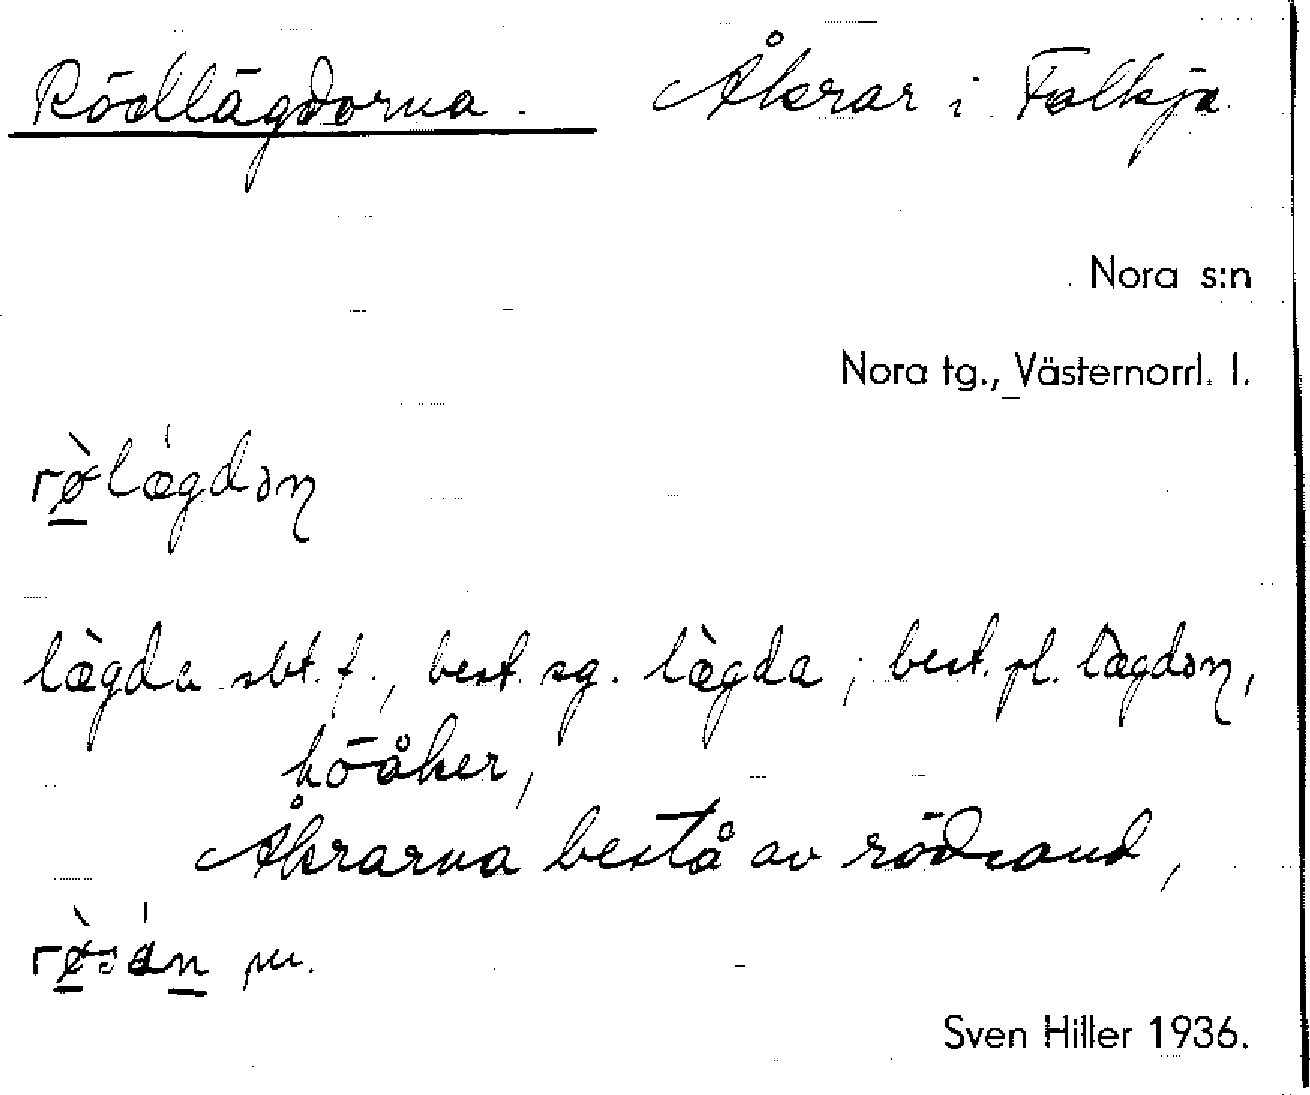 Rödlägdorna. Åkrar i Folkja.
Nora s:n
Nora tg., Västernorrl. l.
rø̀lǽgdəɳ
lægda sbt. f., best. sg. lægda; best. pl. lægdəɳ,
höåker,
Åkrarna bestå av rödsand,
rø̀sán m.
Sven Hiller 1936.